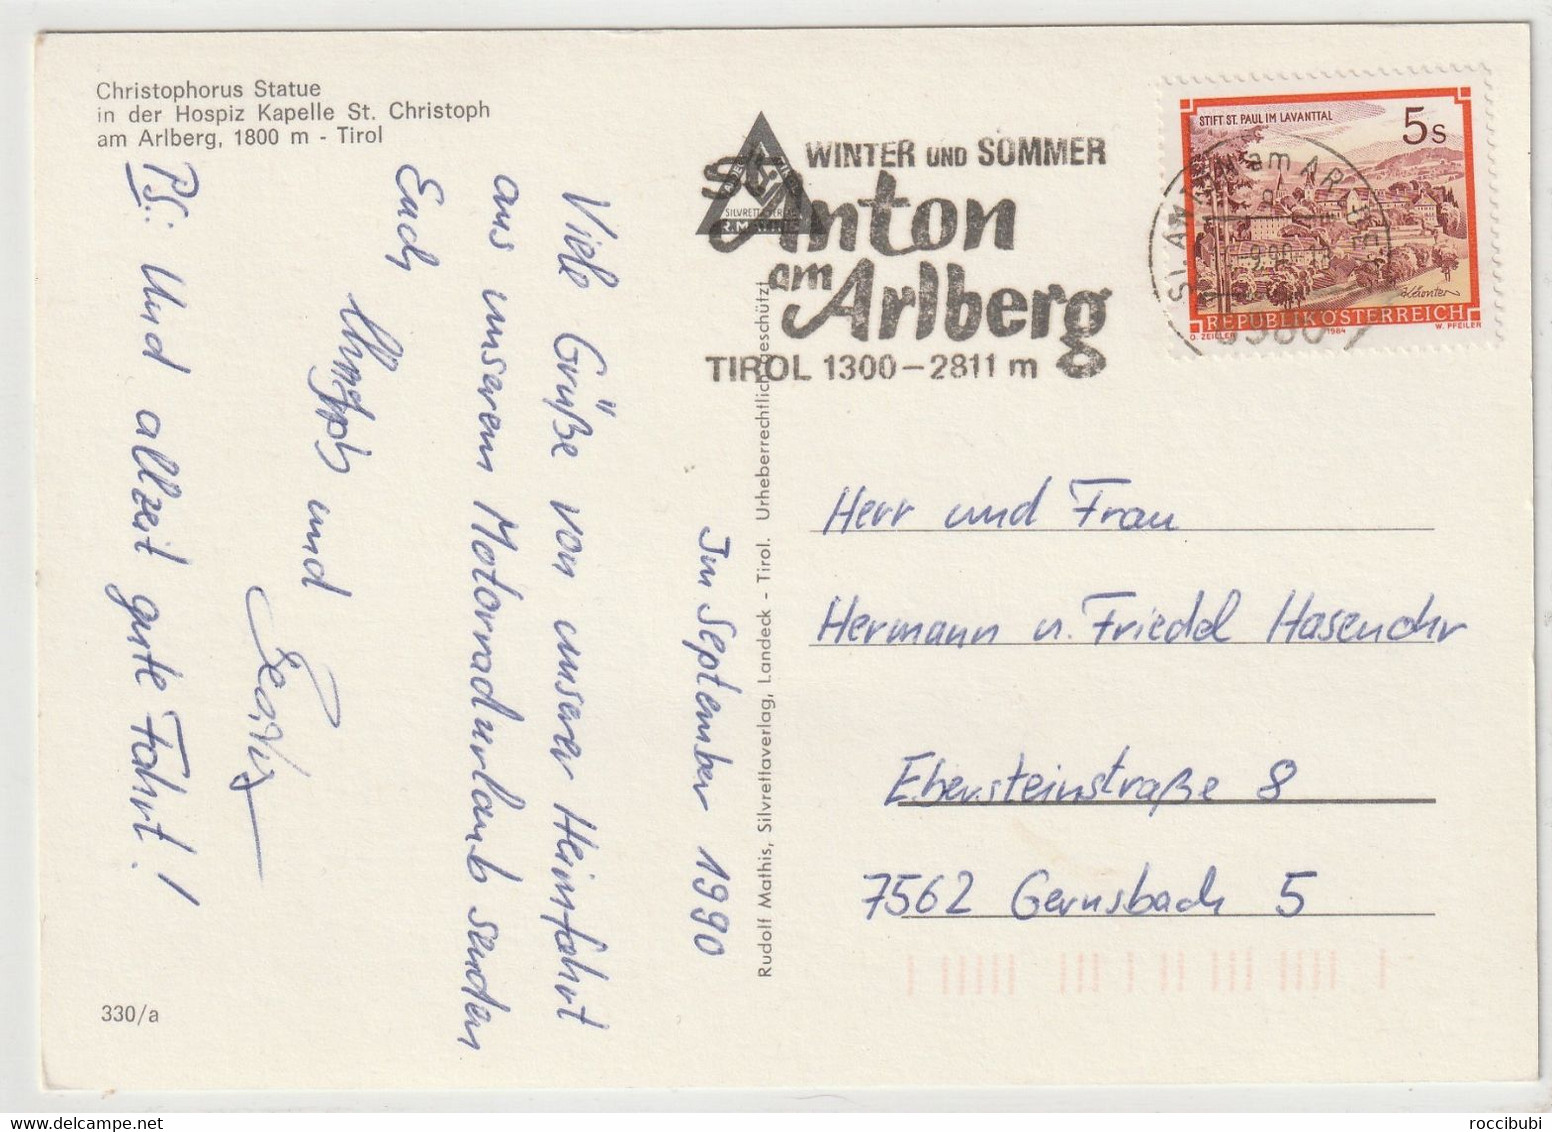 Christophorus Statue
in der Hospiz Kapelle St. Christoph
am Arlberg, 1800 m - Tirol
Im September 1990
Viele Grüße von unserer Heimfahrt
aus unserem Motorradurlaub senden
Euch
und
PS: Und allzeit gute Fahrt!
330/a
Rudolf Mathis, Silvrettaverlag, Landeck - Tirol. Urheberrechtlich geschützt
WINTER UND SOMMER
St. Anton
am
Arlberg
TIROL 1300-2811 m
STIFT ST. PAUL IM LAVANTTAL
5 S
REPUBLIK ÖSTERREICH
O. ZEILLER 1984 W. PFEILER
ST. ANTON am ARLBERG
Herr und Frau
Hermann u. Friedel Hasenohr
Ebersteinstraße 8
7562 Gernsbach 5
roccibubi / delcampe.net